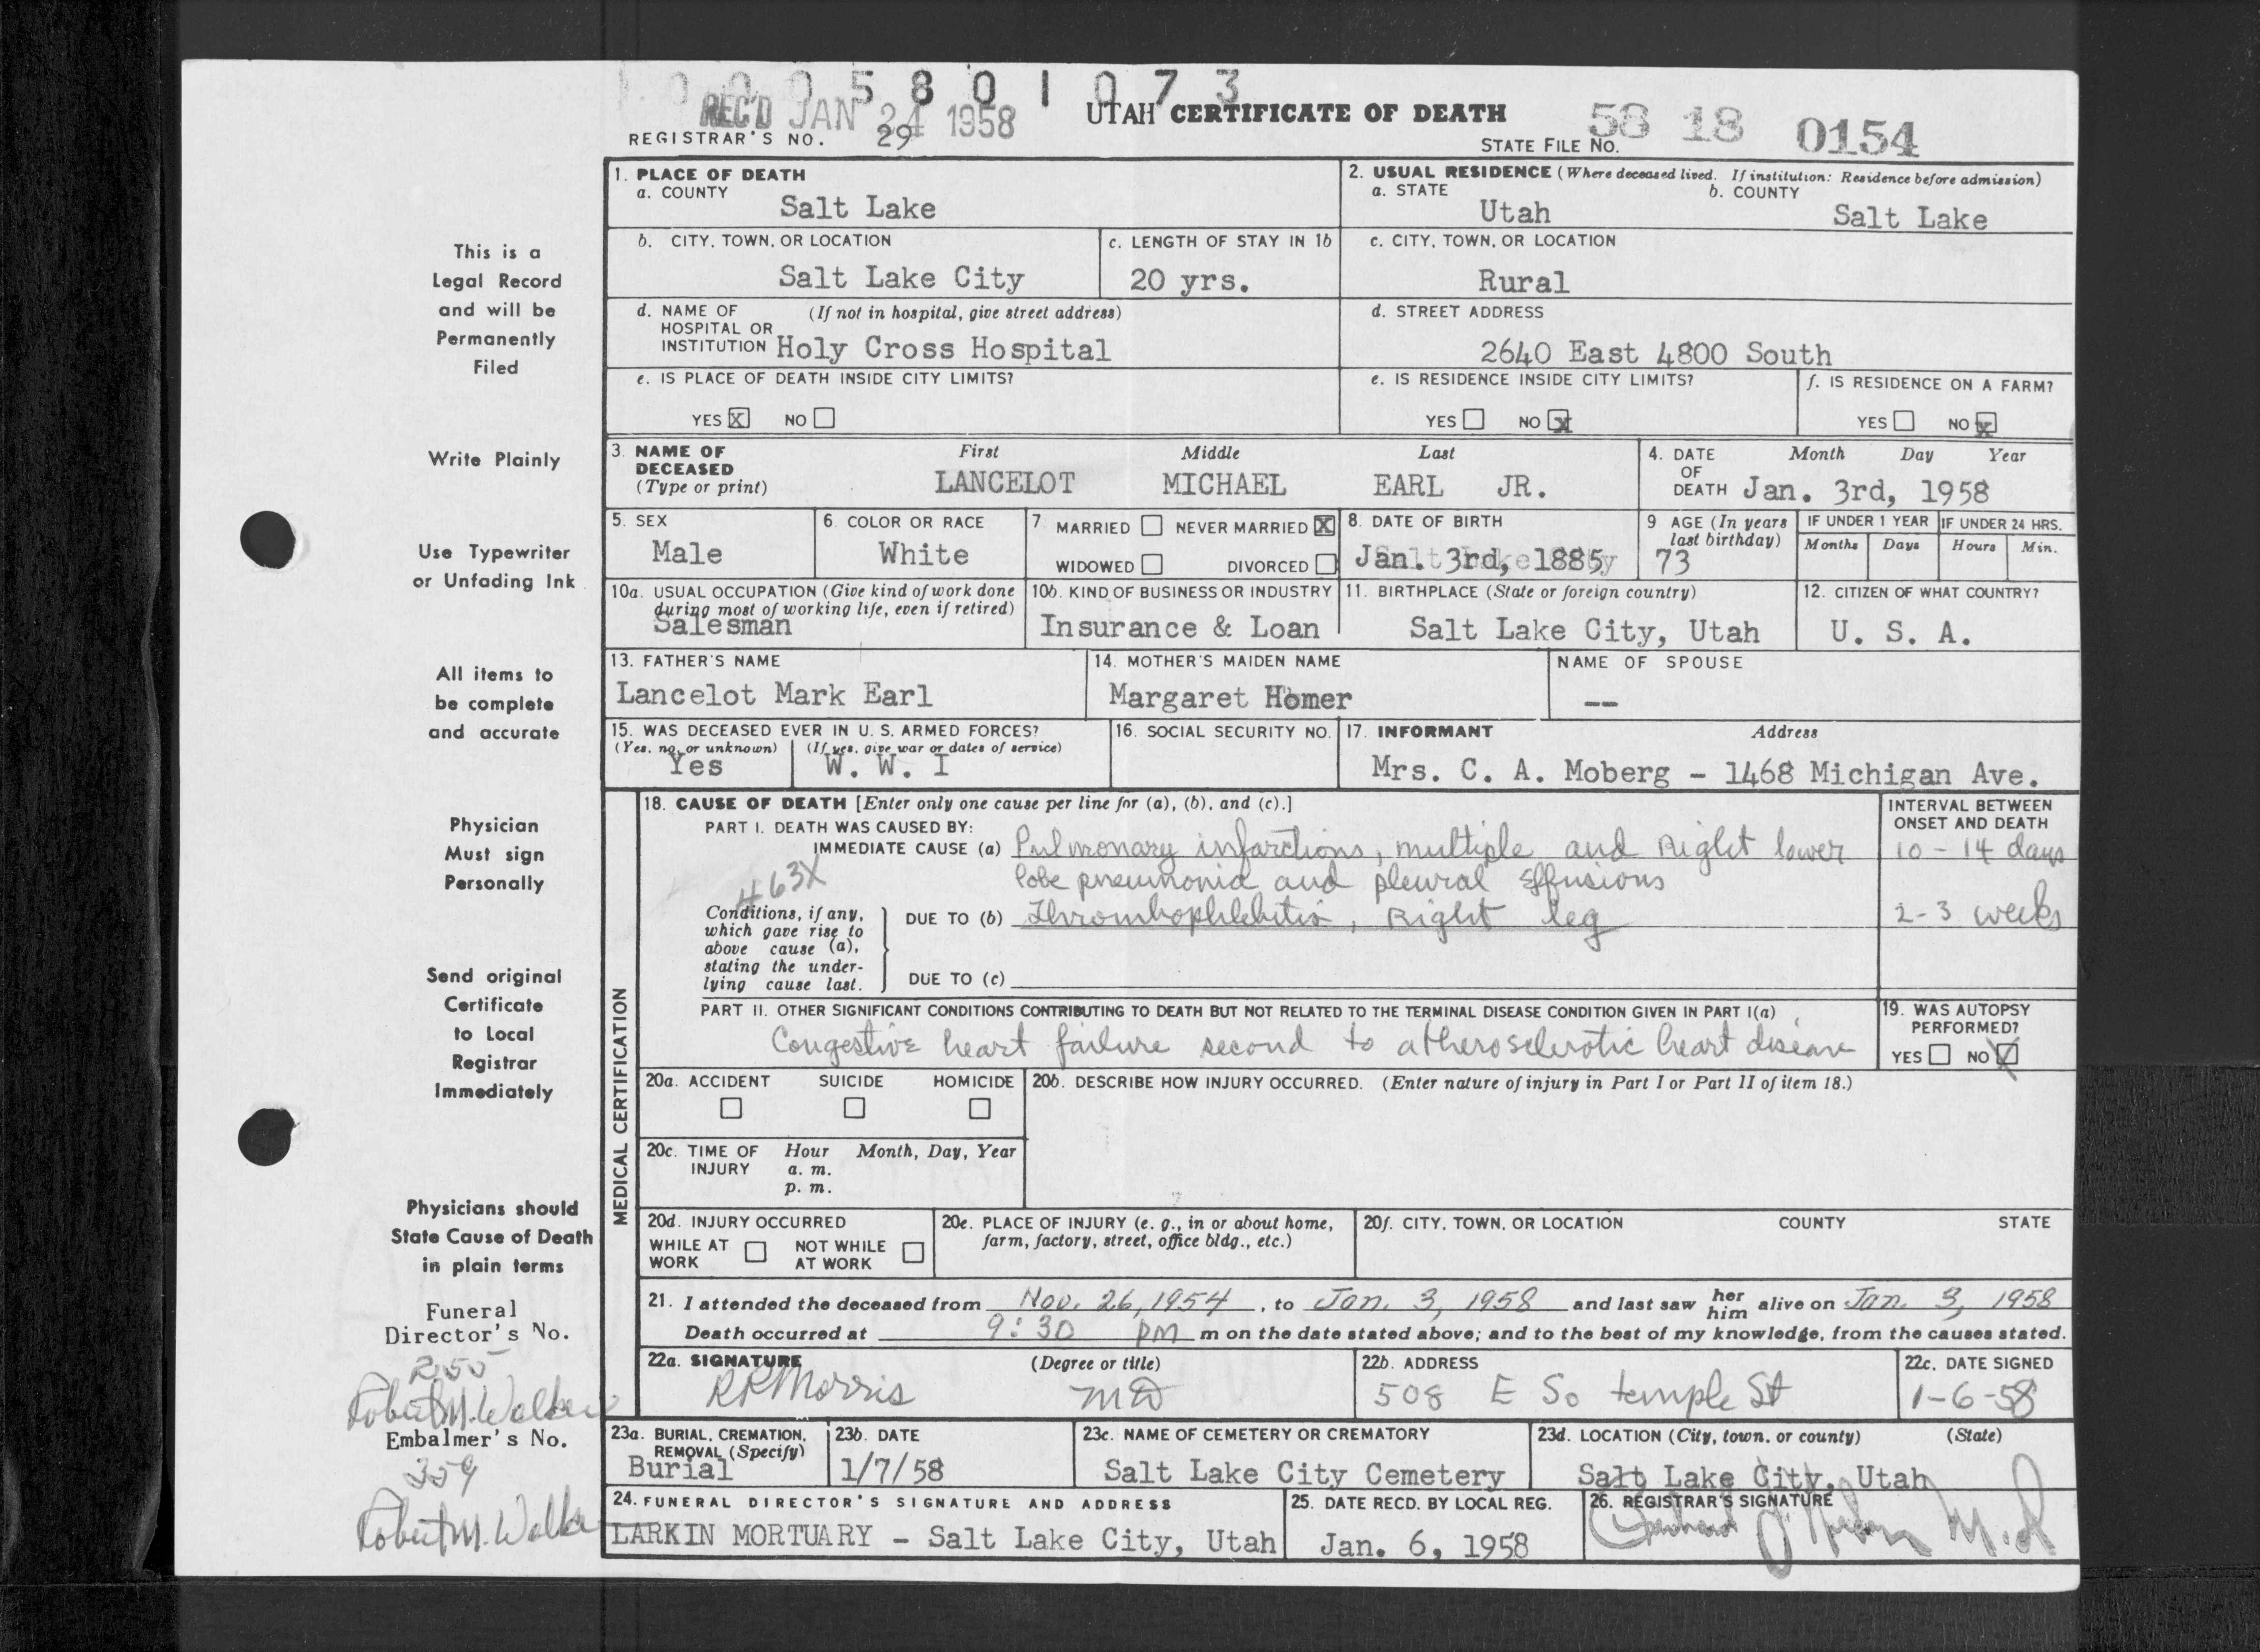 0 0 0 5 8 0 1 0 7 3
REC'D JAN 24 1958
UTAH CERTIFICATE OF DEATH
REGISTRAR'S NO. 29
STATE FILE NO. 58 18 0154
This is a
Legal Record
and will be
Permanently
Filed
Write Plainly
Use Typewriter
or Unfading Ink
All items to
be complete
and accurate
Physician
Must sign
Personally
Send original
Certificate
to Local
Registrar
Immediately
Physicians should
State Cause of Death
in plain terms
Funeral
Director's No.
255
Robert M. Walker
Embalmer's No.
359
Robert M. Walker
1. PLACE OF DEATH
a. COUNTY
Salt Lake
2. USUAL RESIDENCE (Where deceased lived. If institution: Residence before admission)
a. STATE b. COUNTY
Utah Salt Lake
b. CITY, TOWN, OR LOCATION
Salt Lake City
c. LENGTH OF STAY IN 1b
20 yrs.
c. CITY, TOWN, OR LOCATION
Rural
d. NAME OF (If not in hospital, give street address)
HOSPITAL OR
INSTITUTION Holy Cross Hospital
d. STREET ADDRESS
2640 East 4800 South
e. IS PLACE OF DEATH INSIDE CITY LIMITS?
YES X NO
e. IS RESIDENCE INSIDE CITY LIMITS?
YES NO X
f. IS RESIDENCE ON A FARM?
YES NO X
3. NAME OF
DECEASED
(Type or print)
First Middle Last
LANCELOT MICHAEL EARL JR.
4. DATE Month Day Year
OF
DEATH Jan. 3rd, 1958
5. SEX
Male
6. COLOR OR RACE
White
7. MARRIED NEVER MARRIED X
WIDOWED DIVORCED
8. DATE OF BIRTH
Jan. 3rd, 1885
9 AGE (In years
last birthday)
73
IF UNDER 1 YEAR
Months Days
IF UNDER 24 HRS.
Hours Min.
10a. USUAL OCCUPATION (Give kind of work done
during most of working life, even if retired)
Salesman
10b. KIND OF BUSINESS OR INDUSTRY
Insurance & Loan
11. BIRTHPLACE (State or foreign country)
Salt Lake City, Utah
12. CITIZEN OF WHAT COUNTRY?
U. S. A.
13. FATHER'S NAME
Lancelot Mark Earl
14. MOTHER'S MAIDEN NAME
Margaret Homer
NAME OF SPOUSE
--
15. WAS DECEASED EVER IN U. S. ARMED FORCES?
(Yes, no, or unknown) (If yes, give war or dates of service)
Yes W. W. I
16. SOCIAL SECURITY NO.
17. INFORMANT Address
Mrs. C. A. Moberg - 1468 Michigan Ave.
MEDICAL CERTIFICATION
18. CAUSE OF DEATH [Enter only one cause per line for (a), (b), and (c).]
INTERVAL BETWEEN
ONSET AND DEATH
PART I. DEATH WAS CAUSED BY:
IMMEDIATE CAUSE (a) Pulmonary infarctions, multiple and Right lower 10 - 14 days
lobe pneumonia and pleural Effusions
463X
Conditions, if any,
which gave rise to
above cause (a),
stating the under-
lying cause last.
DUE TO (b) Thrombophlebitis, Right leg 2-3 weeks
DUE TO (c)
PART II. OTHER SIGNIFICANT CONDITIONS CONTRIBUTING TO DEATH BUT NOT RELATED TO THE TERMINAL DISEASE CONDITION GIVEN IN PART I(a)
Congestive heart failure second to atherosclerotic heart disease
19. WAS AUTOPSY
PERFORMED?
YES NO X
20a. ACCIDENT SUICIDE HOMICIDE
20b. DESCRIBE HOW INJURY OCCURRED. (Enter nature of injury in Part I or Part II of item 18.)
20c. TIME OF Hour Month, Day, Year
INJURY a. m.
p. m.
20d. INJURY OCCURRED
WHILE AT NOT WHILE
WORK AT WORK
20e. PLACE OF INJURY (e. g., in or about home,
farm, factory, street, office bldg., etc.)
20f. CITY, TOWN, OR LOCATION COUNTY STATE
21. I attended the deceased from Nov. 26, 1954, to Jan. 3, 1958 and last saw her him alive on Jan. 3, 1958
Death occurred at 9:30 PM m on the date stated above; and to the best of my knowledge, from the causes stated.
22a. SIGNATURE (Degree or title)
RR Morris MD
22b. ADDRESS
508 E So temple St
22c. DATE SIGNED
1-6-58
23a. BURIAL, CREMATION,
REMOVAL (Specify)
Burial
23b. DATE
1/7/58
23c. NAME OF CEMETERY OR CREMATORY
Salt Lake City Cemetery
23d. LOCATION (City, town, or county) (State)
Salt Lake City, Utah
24. FUNERAL DIRECTOR'S SIGNATURE AND ADDRESS
LARKIN MORTUARY - Salt Lake City, Utah
25. DATE RECD. BY LOCAL REG.
Jan. 6, 1958
26. REGISTRAR'S SIGNATURE
M.D